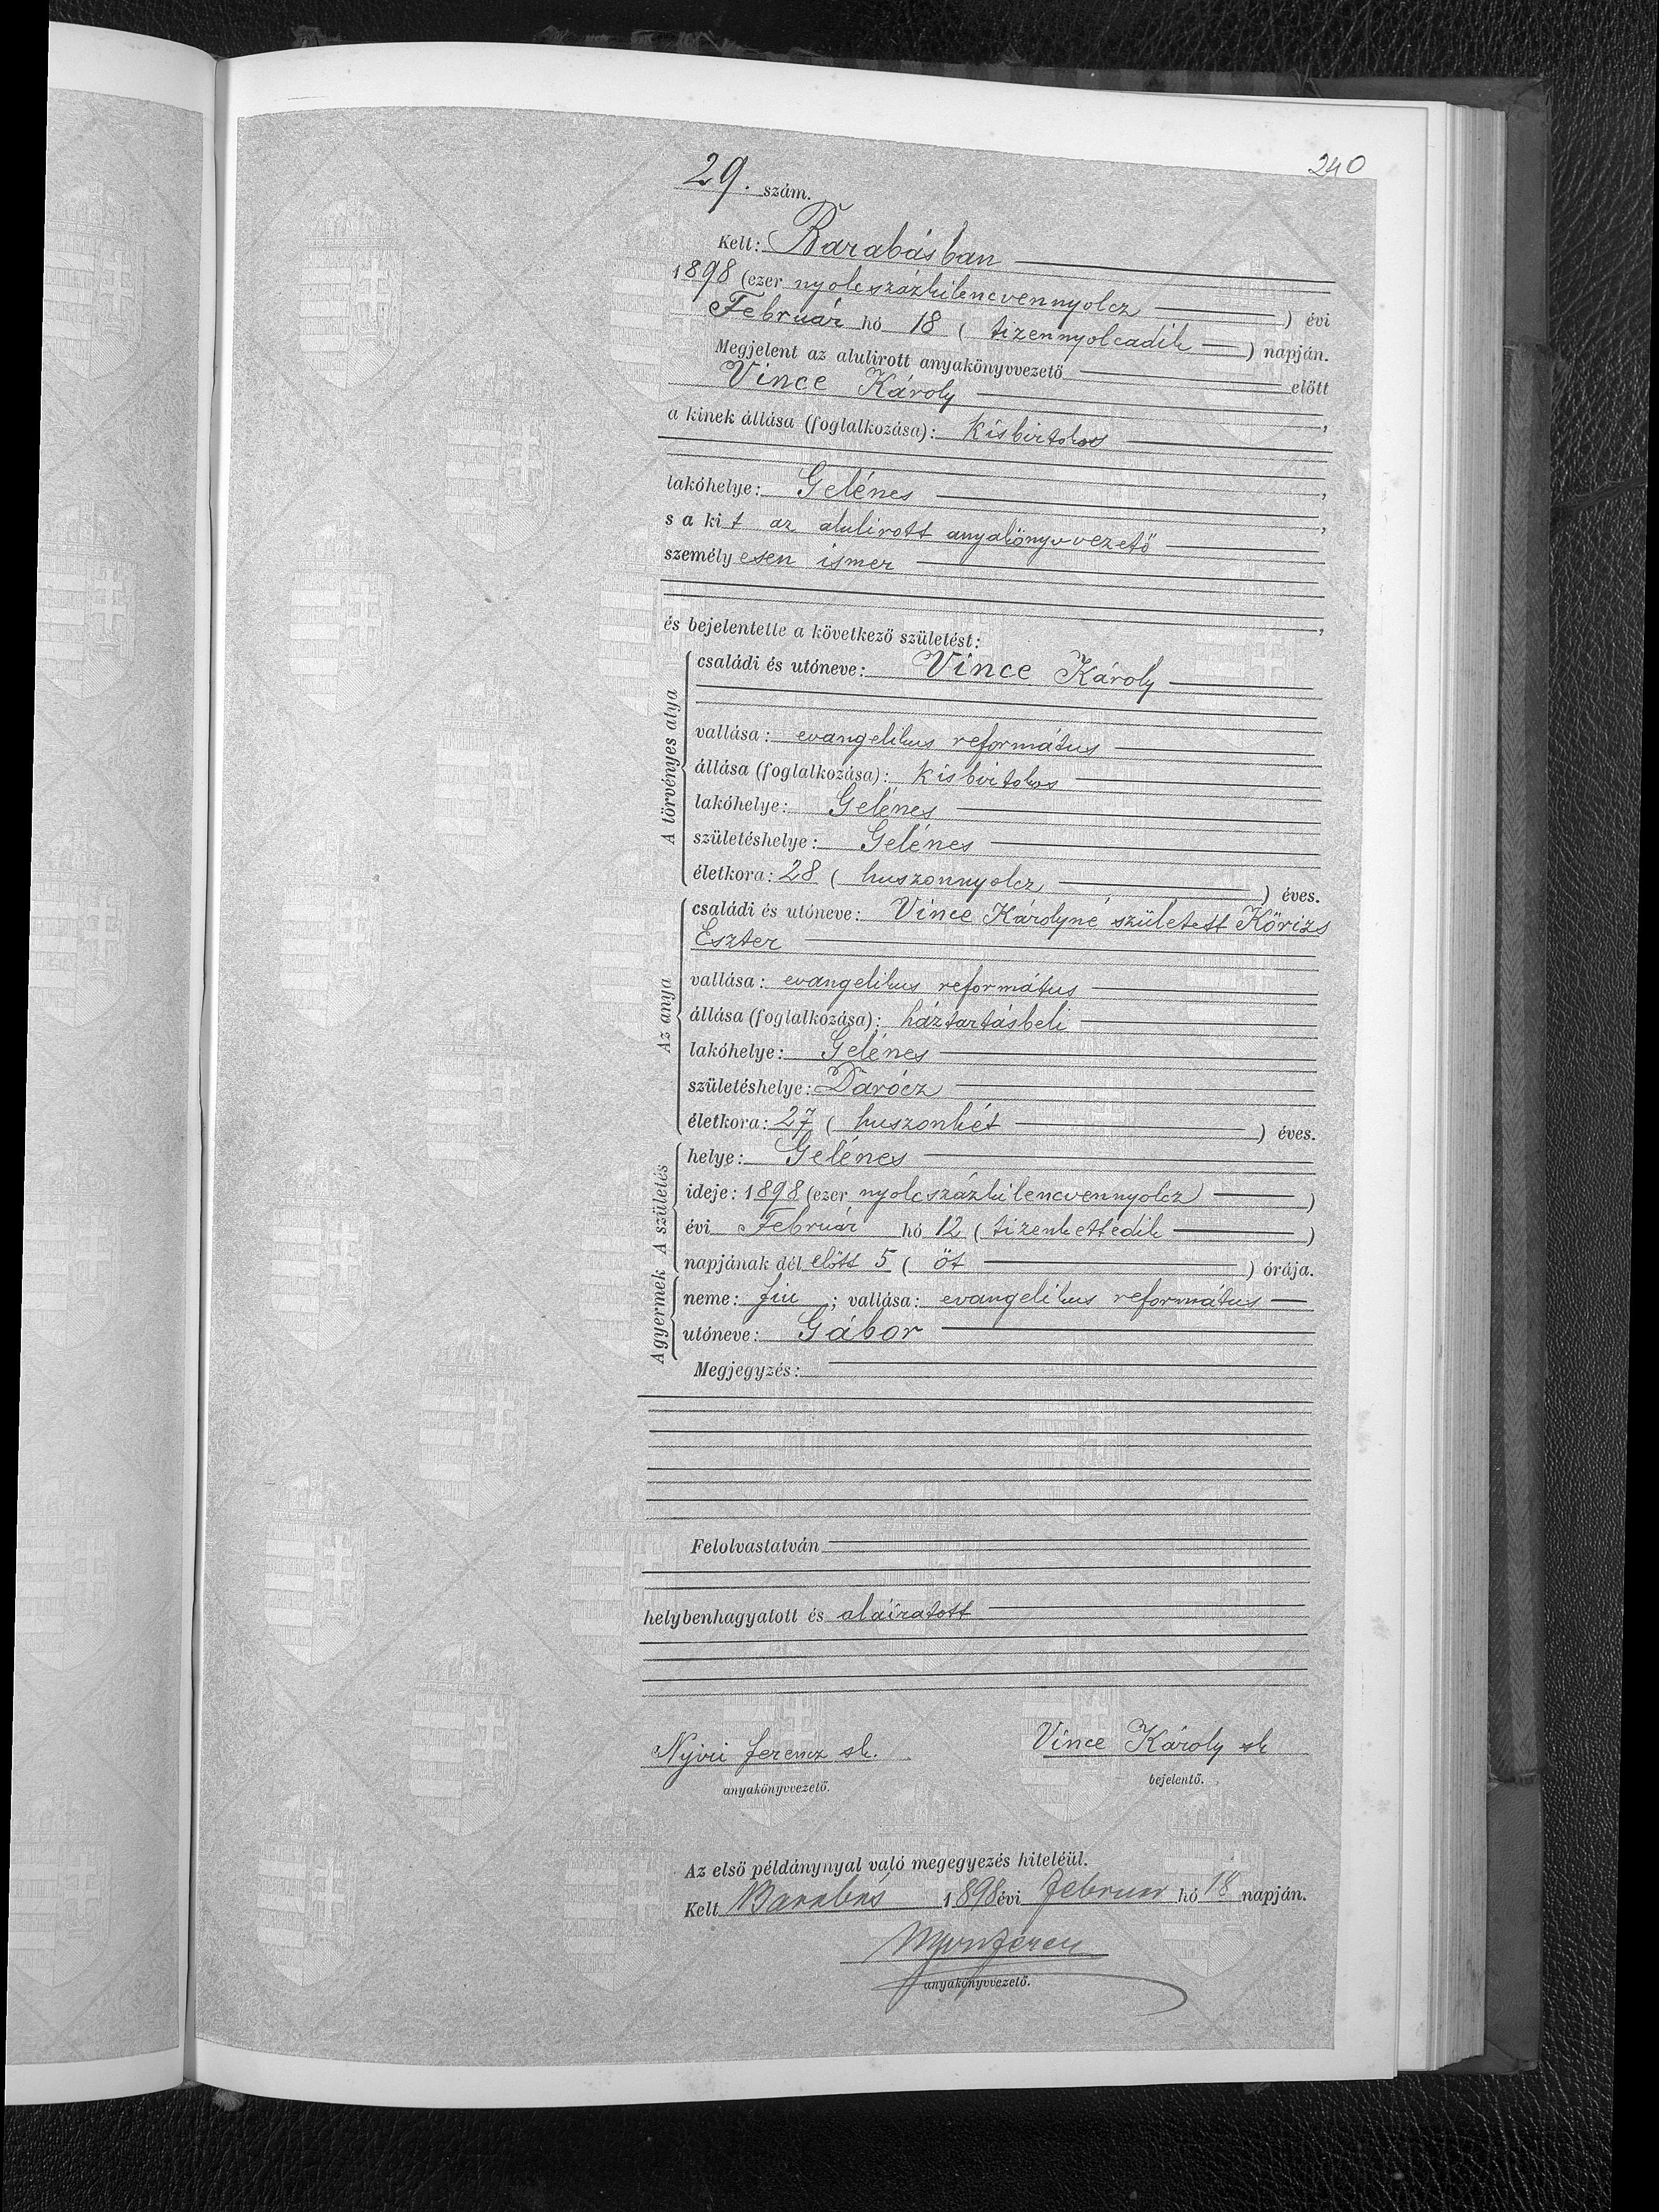 240
29. szám.
Kelt: Barabásban
1898 (ezer nyolcszázkilencvennyolcz) évi
Február hó 18 (tizennyolcadik) napján.
Megjelent az alulirott anyakönyvvezető előtt
Vince Károly,
a kinek állása (foglalkozása): kisbirtokos
lakóhelye: Gelénes,
s a kit az alulirott anyakönyvvezető,
személyesen ismer
és bejelentette a következő születést:
A törvényes atya
családi és utóneve: Vince Károly
vallása: evangelikus református
állása (foglalkozása): kisbirtokos
lakóhelye: Gelénes
születéshelye: Gelénes
életkora: 28 (huszonnyolcz) éves.
Az anya
családi és utóneve: Vince Károlyné született Kőrizs
Eszter
vallása: evangelikus református
állása (foglalkozása): háztartásbeli
lakóhelye: Gelénes
születéshelye: Darócz
életkora: 27 (huszonhét) éves.
A születés
helye: Gelénes
ideje: 1898 (ezer nyolcszázkilencvennyolcz)
évi Február hó 12 (tizenkettedik)
napjának dél előtt 5 (öt) órája.
A gyermek
neme: fiu; vallása: evangelikus református
utóneve: Gábor
Megjegyzés:
Felolvastatván
helybenhagyatott és aláiratott
Ferencz sk. Vince Károly sk
anyakönyvvezető. bejelentő.
Az első példánynyal való megegyezés hiteléül.
Kelt Barabás 1898 évi Február hó 18 napján.
anyakönyvvezető.